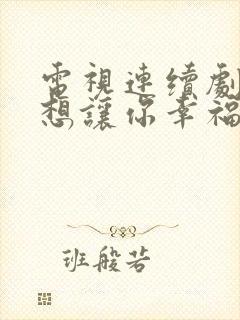 電視連續劇
想讓你幸福
班般若